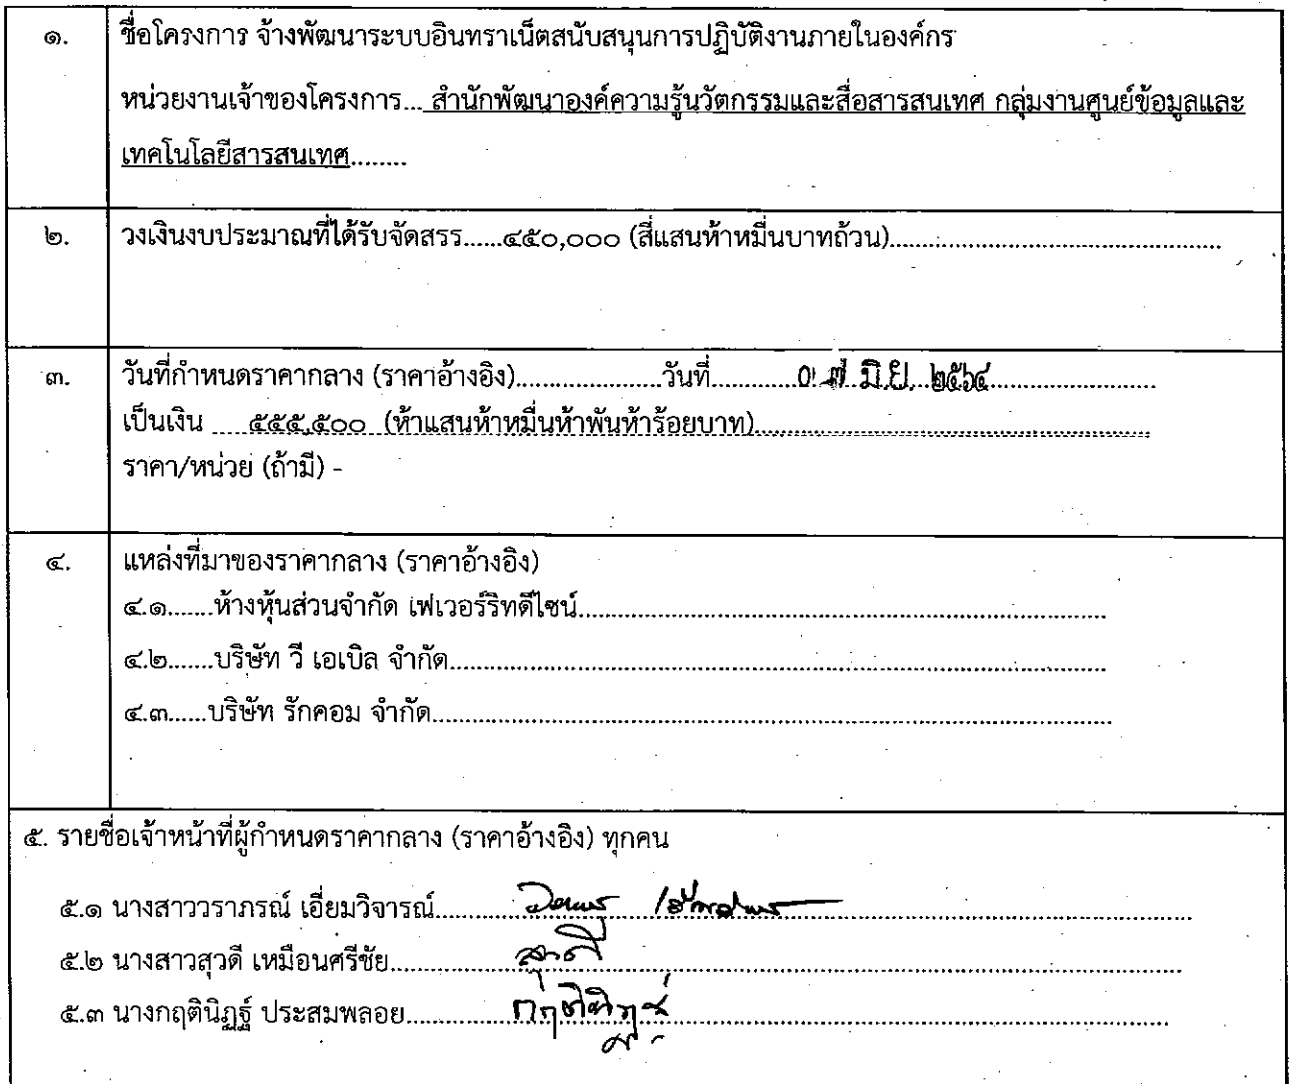 ๑. ชื่อโครงการ จ้างพัฒนาระบบอินทราเน็ตสนับสนุนการปฏิบัติงานภายในองค์กร
หน่วยงานเจ้าของโครงการ... สำนักพัฒนาองค์ความรู้นวัตกรรมและสื่อสารสนเทศ กลุ่มงานศูนย์ข้อมูลและ
เทคโนโลยีสารสนเทศ........
๒. วงเงินงบประมาณที่ได้รับจัดสรร......๔๕๐,๐๐๐ (สี่แสนห้าหมื่นบาทถ้วน)..........
๓. วันที่กำหนดราคากลาง (ราคาอ้างอิง)..........วันที่..........๐๗ มิ.ย. ๒๕๖๔..........
เป็นเงิน ....๕๕๕,๕๐๐ (ห้าแสนห้าหมื่นห้าพันห้าร้อยบาท)..........
ราคา/หน่วย (ถ้ามี) -
๔. แหล่งที่มาของราคากลาง (ราคาอ้างอิง)
๔.๑.......ห้างหุ้นส่วนจำกัด เฟเวอร์ริทดีไซน์..........
๔.๒.......บริษัท วี เอเบิล จำกัด..........
๔.๓......บริษัท รักคอม จำกัด..........
๕. รายชื่อเจ้าหน้าที่ผู้กำหนดราคากลาง (ราคาอ้างอิง) ทุกคน
๕.๑ นางสาววราภรณ์ เอี่ยมวิจารณ์..........
๕.๒ นางสาวสุวดี เหมือนศรีชัย..........
๕.๓ นางกฤตินิฏฐ์ ประสมพลอย..........